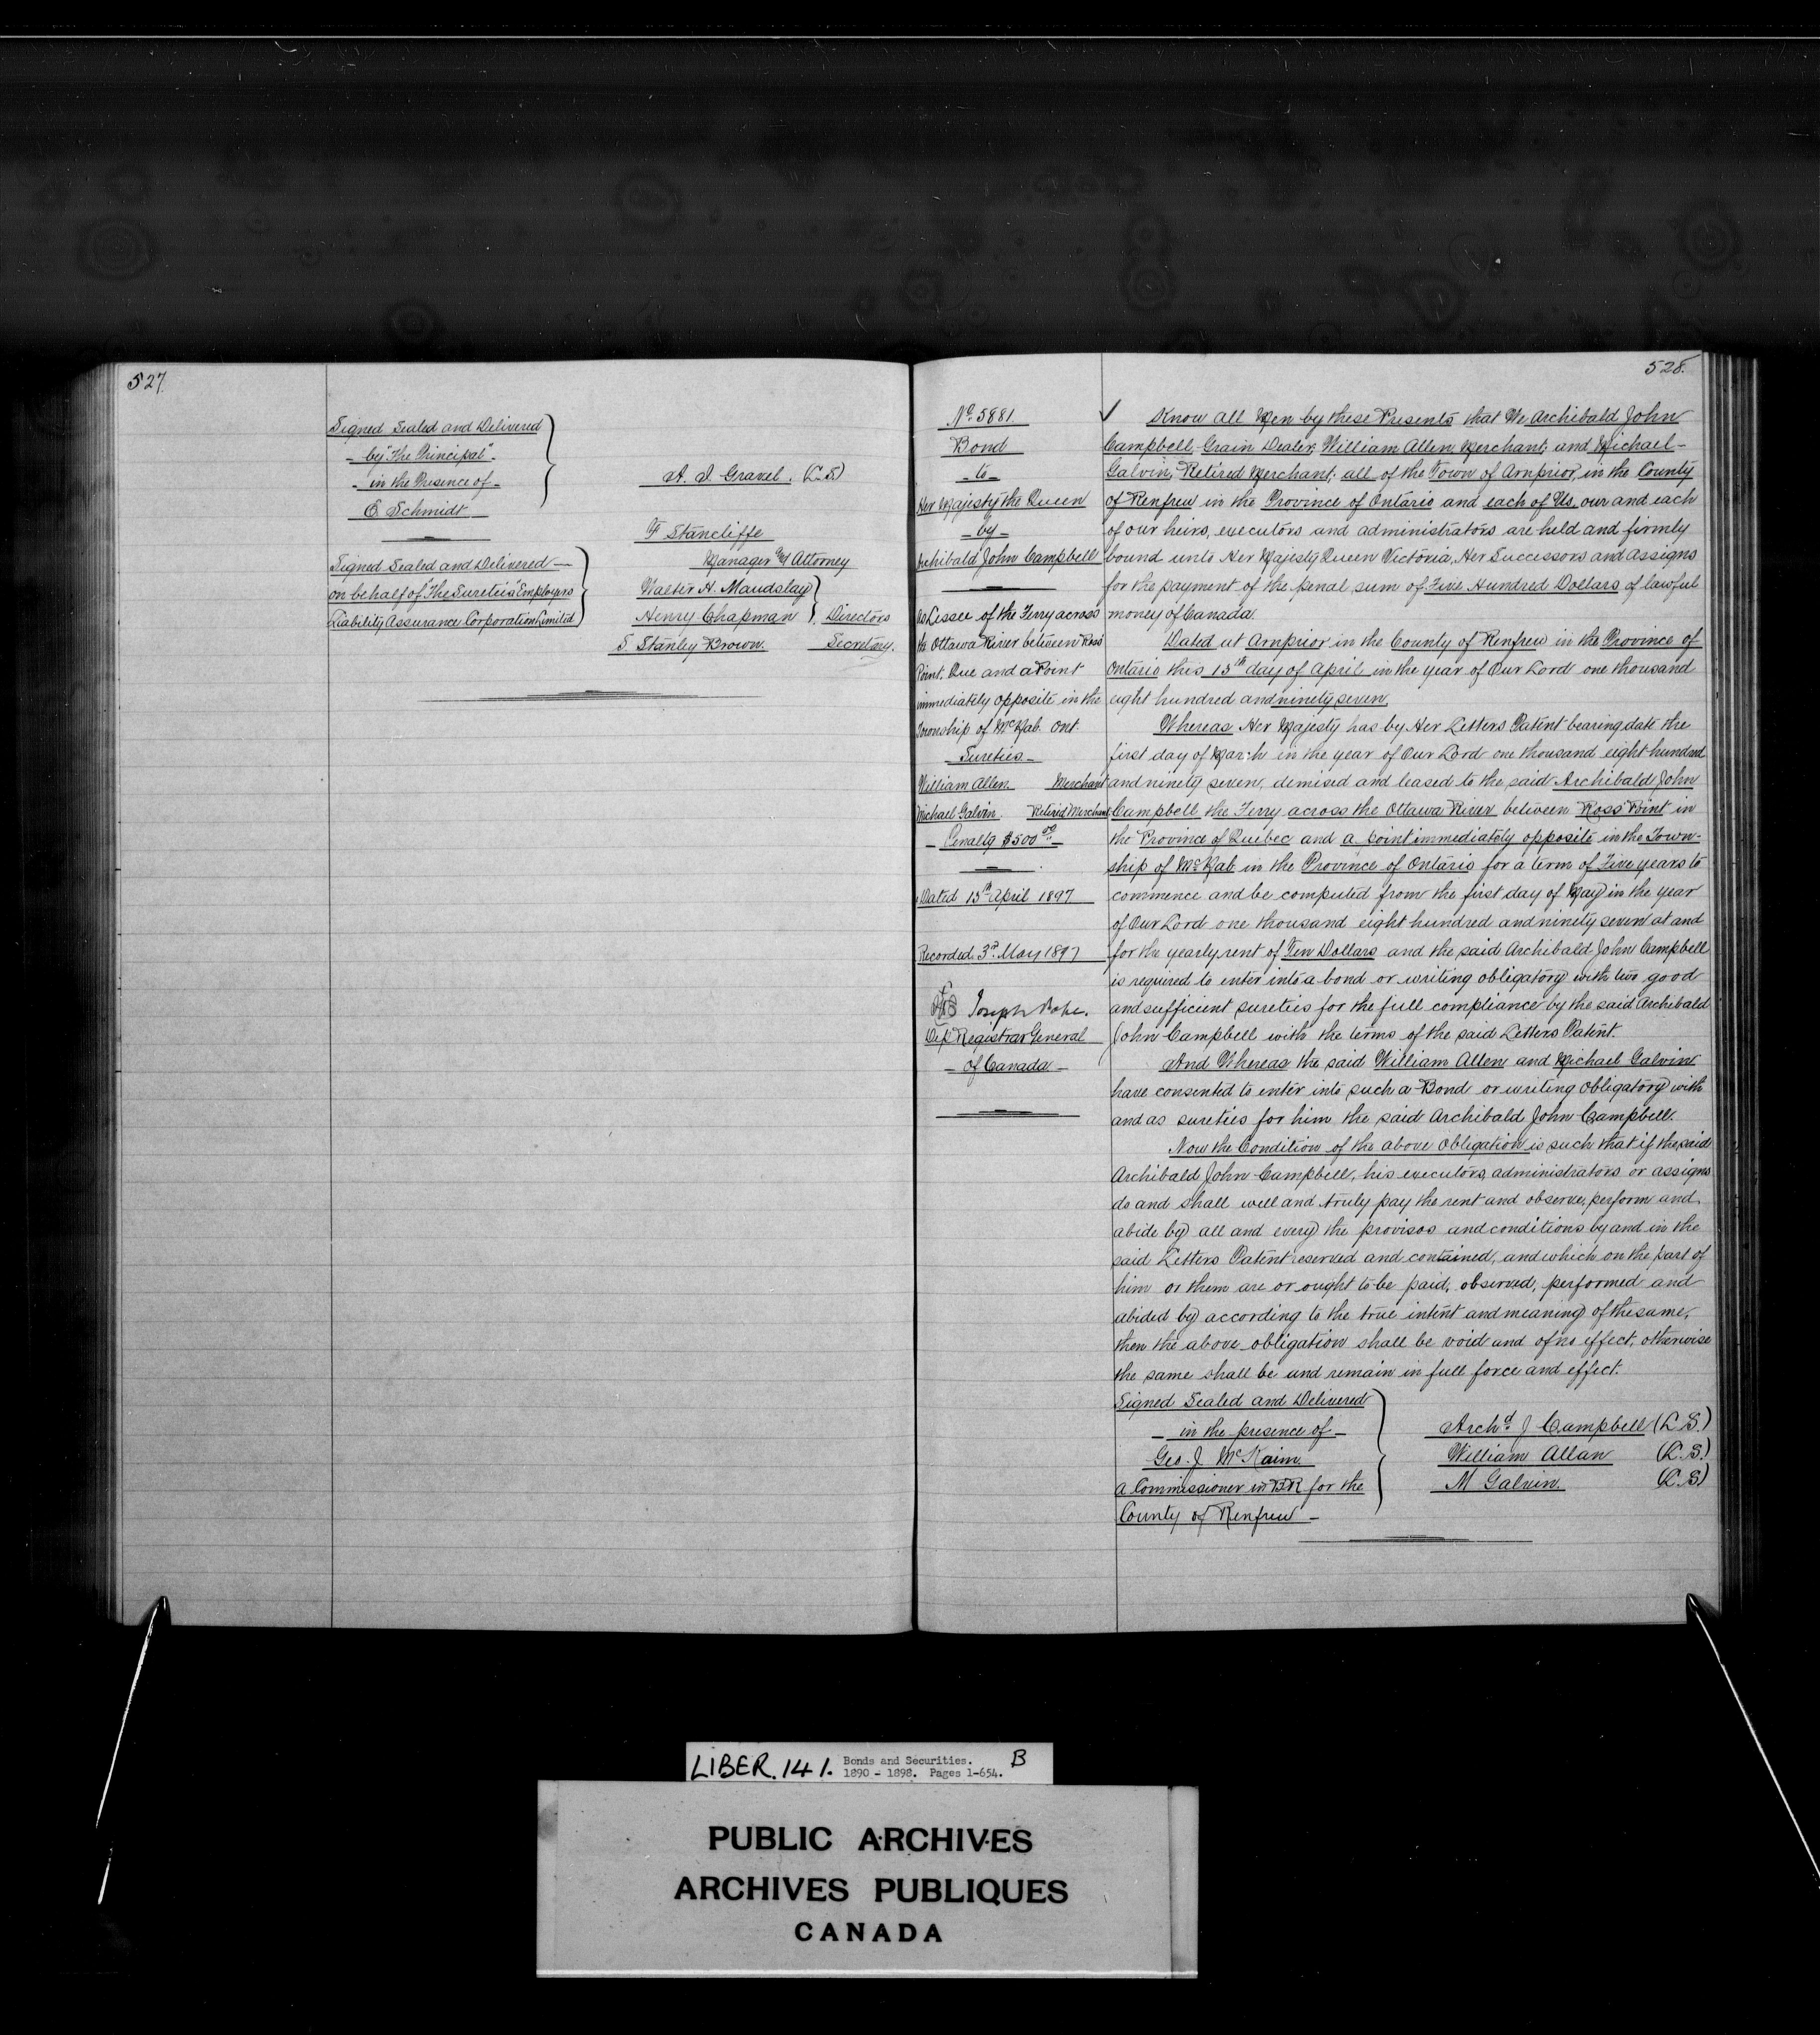 527.
Signed Sealed and Delivered
- by "The Principal" -
- in the Presence of -
E Schmidt
A. J. Gravel. (L.S.)
Signed Sealed and Delivered -
on behalf of "The Sureties" Employers
Liability Assurance Corporation Limited
F Stancliffe
Manager and Attorney
Walter H. Maudslay
Henry Chapman } Directors
S. Stanley Brown. Secretary.
528.
No. 5881.
Bond
- to -
Her Majesty the Queen
- by -
Archibald John Campbell
As Lessee of the Ferry across
the Ottawa River between Ross
Point. Que and a Point
immediately opposite in the
Township of McNab. Ont.
Sureties -
William Allen. Merchant
Michael Galvin. Retired Merchant
- Penalty $500 00 -
Dated 15th April 1897
Recorded 3rd May 1897
Joseph Pope.
Dep. Registrar General
- of Canada -
Know all Men by these Presents that We Archibald John
Campbell, Grain Dealer; William Allen, Merchant; and Michael
Galvin, Retired Merchant; all of the Town of Arnprior, in the County
of Renfrew in the Province of Ontario and each of Us, our and each
of our heirs, executors and administrators are held and firmly
bound unto Her Majesty Queen Victoria, Her Successors and Assigns
for the payment of the penal sum of Five Hundred Dollars of lawful
money of Canada.
Dated at Arnprior in the County of Renfrew in the Province of
Ontario this 15th day of April in the year of Our Lord one thousand
eight hundred and ninety seven.
Whereas Her Majesty has by Her Letters Patent bearing date the
first day of March in the year of Our Lord one thousand eight hundred
and ninety seven, demised and leased to the said Archibald John
Campbell the Ferry across the Ottawa River between Ross' Point in
the Province of Quebec and a point immediately opposite in the Town-
ship of McNab in the Province of Ontario for a term of Five years to
commence and be computed from the first day of May in the year
of Our Lord one thousand eight hundred and ninety seven at and
for the yearly rent of Ten Dollars and the said Archibald John Campbell
is required to enter into a bond or writing obligatory with two good
and sufficient sureties for the full compliance by the said Archibald
John Campbell with the terms of the said Letters Patent.
And Whereas the said William Allen and Michael Galvin
have consented to enter into such a Bond or writing Obligatory with
and as sureties for him the said Archibald John Campbell.
Now the Condition of the above Obligation is such that if the said
Archibald John Campbell, his executors, administrators or assigns
do and shall well and truly pay the rent and observe, perform and
abide by all and every the provisos and conditions by and in the
said Letters Patent reserved and contained, and which on the part of
him or them are or ought to be paid, observed, performed and
abided by according to the true intent and meaning of the same,
then the above obligation shall be void and of no effect, otherwise
the same shall be and remain in full force and effect.
Signed Sealed and Delivered
- in the presence of -
Geo. J. McNaim.
A Commissioner in BR for the
County of Renfrew -
Archd. J Campbell (L.S.)
William Allan (L.S.)
M Galvin. (L.S.)
LIBER. 141. Bonds and Securities. B
1890 - 1898. Pages 1-654.
PUBLIC ARCHIVES
ARCHIVES PUBLIQUES
CANADA